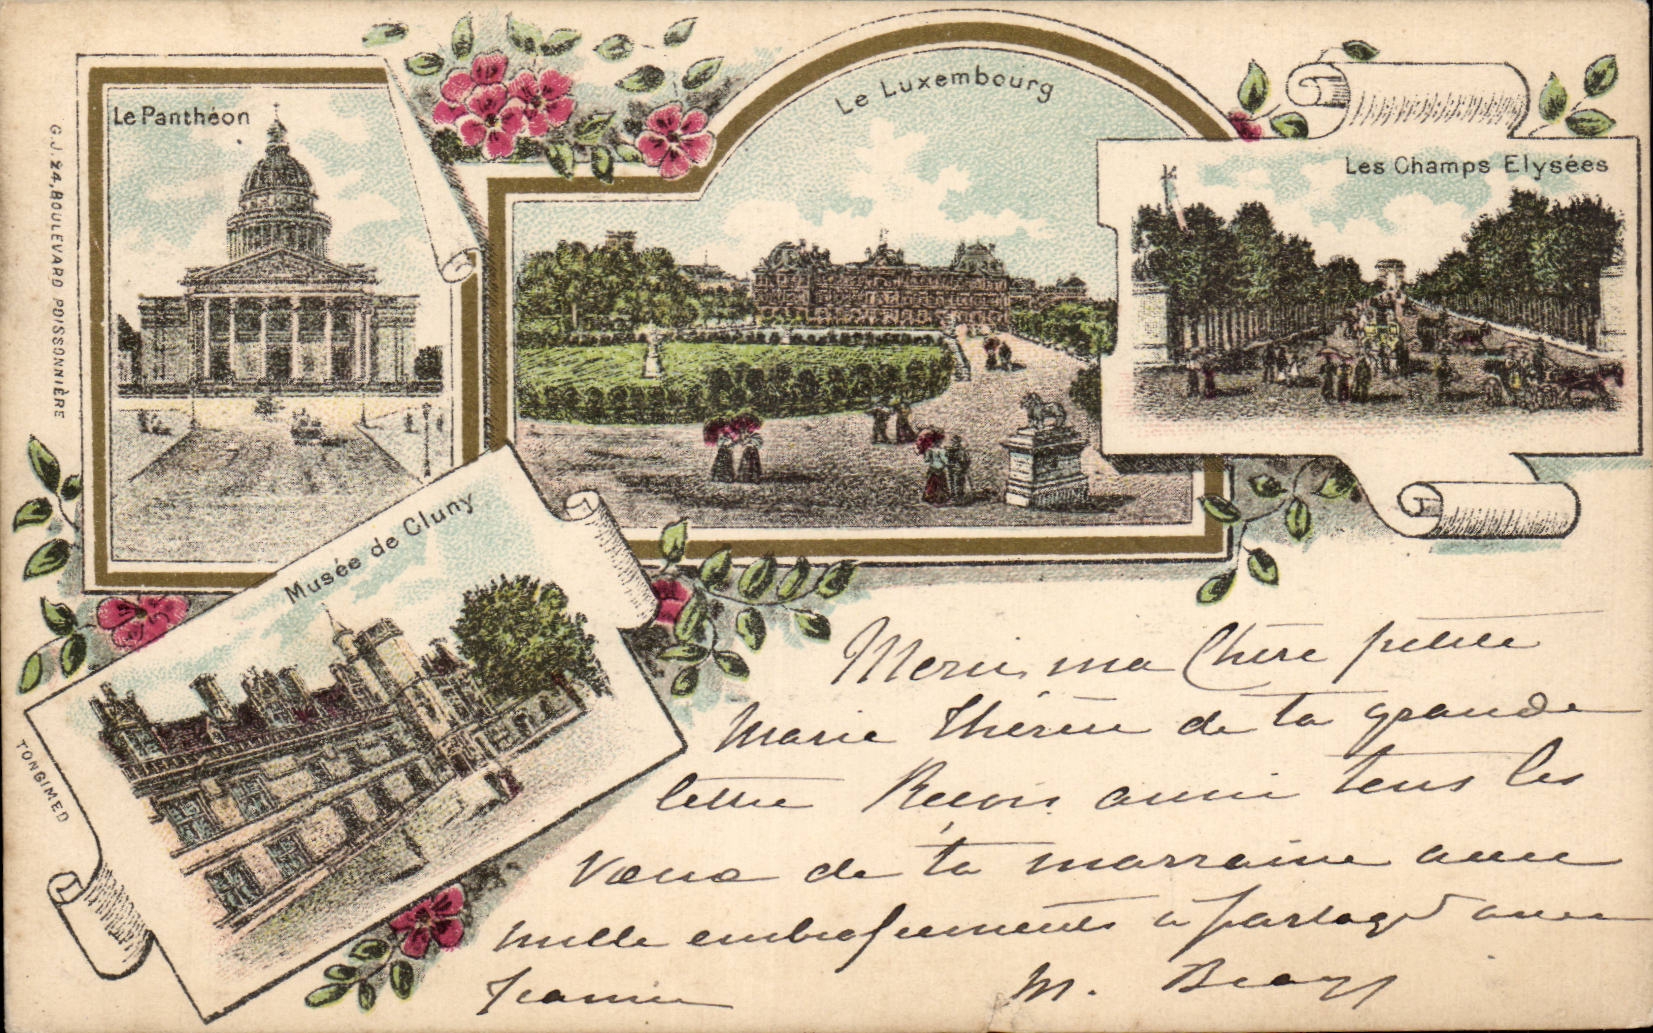 Le Panthéon
Le Luxembourg
Les Champs Elysées
G.J. 24, BOULEVARD POISSONNIÈRE
Musée de Cluny
TONGIMED
Merci ma Chère petite
Marie Thérèse de ta grande
lettre Reçois aussi tous les
vœux de ta marraine avec
mille embrassements à partager avec
Jeanne
M.